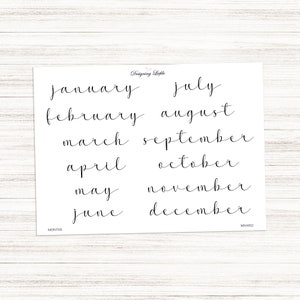 Designing Liefde
january july
february august
march september
april october
may november
june december